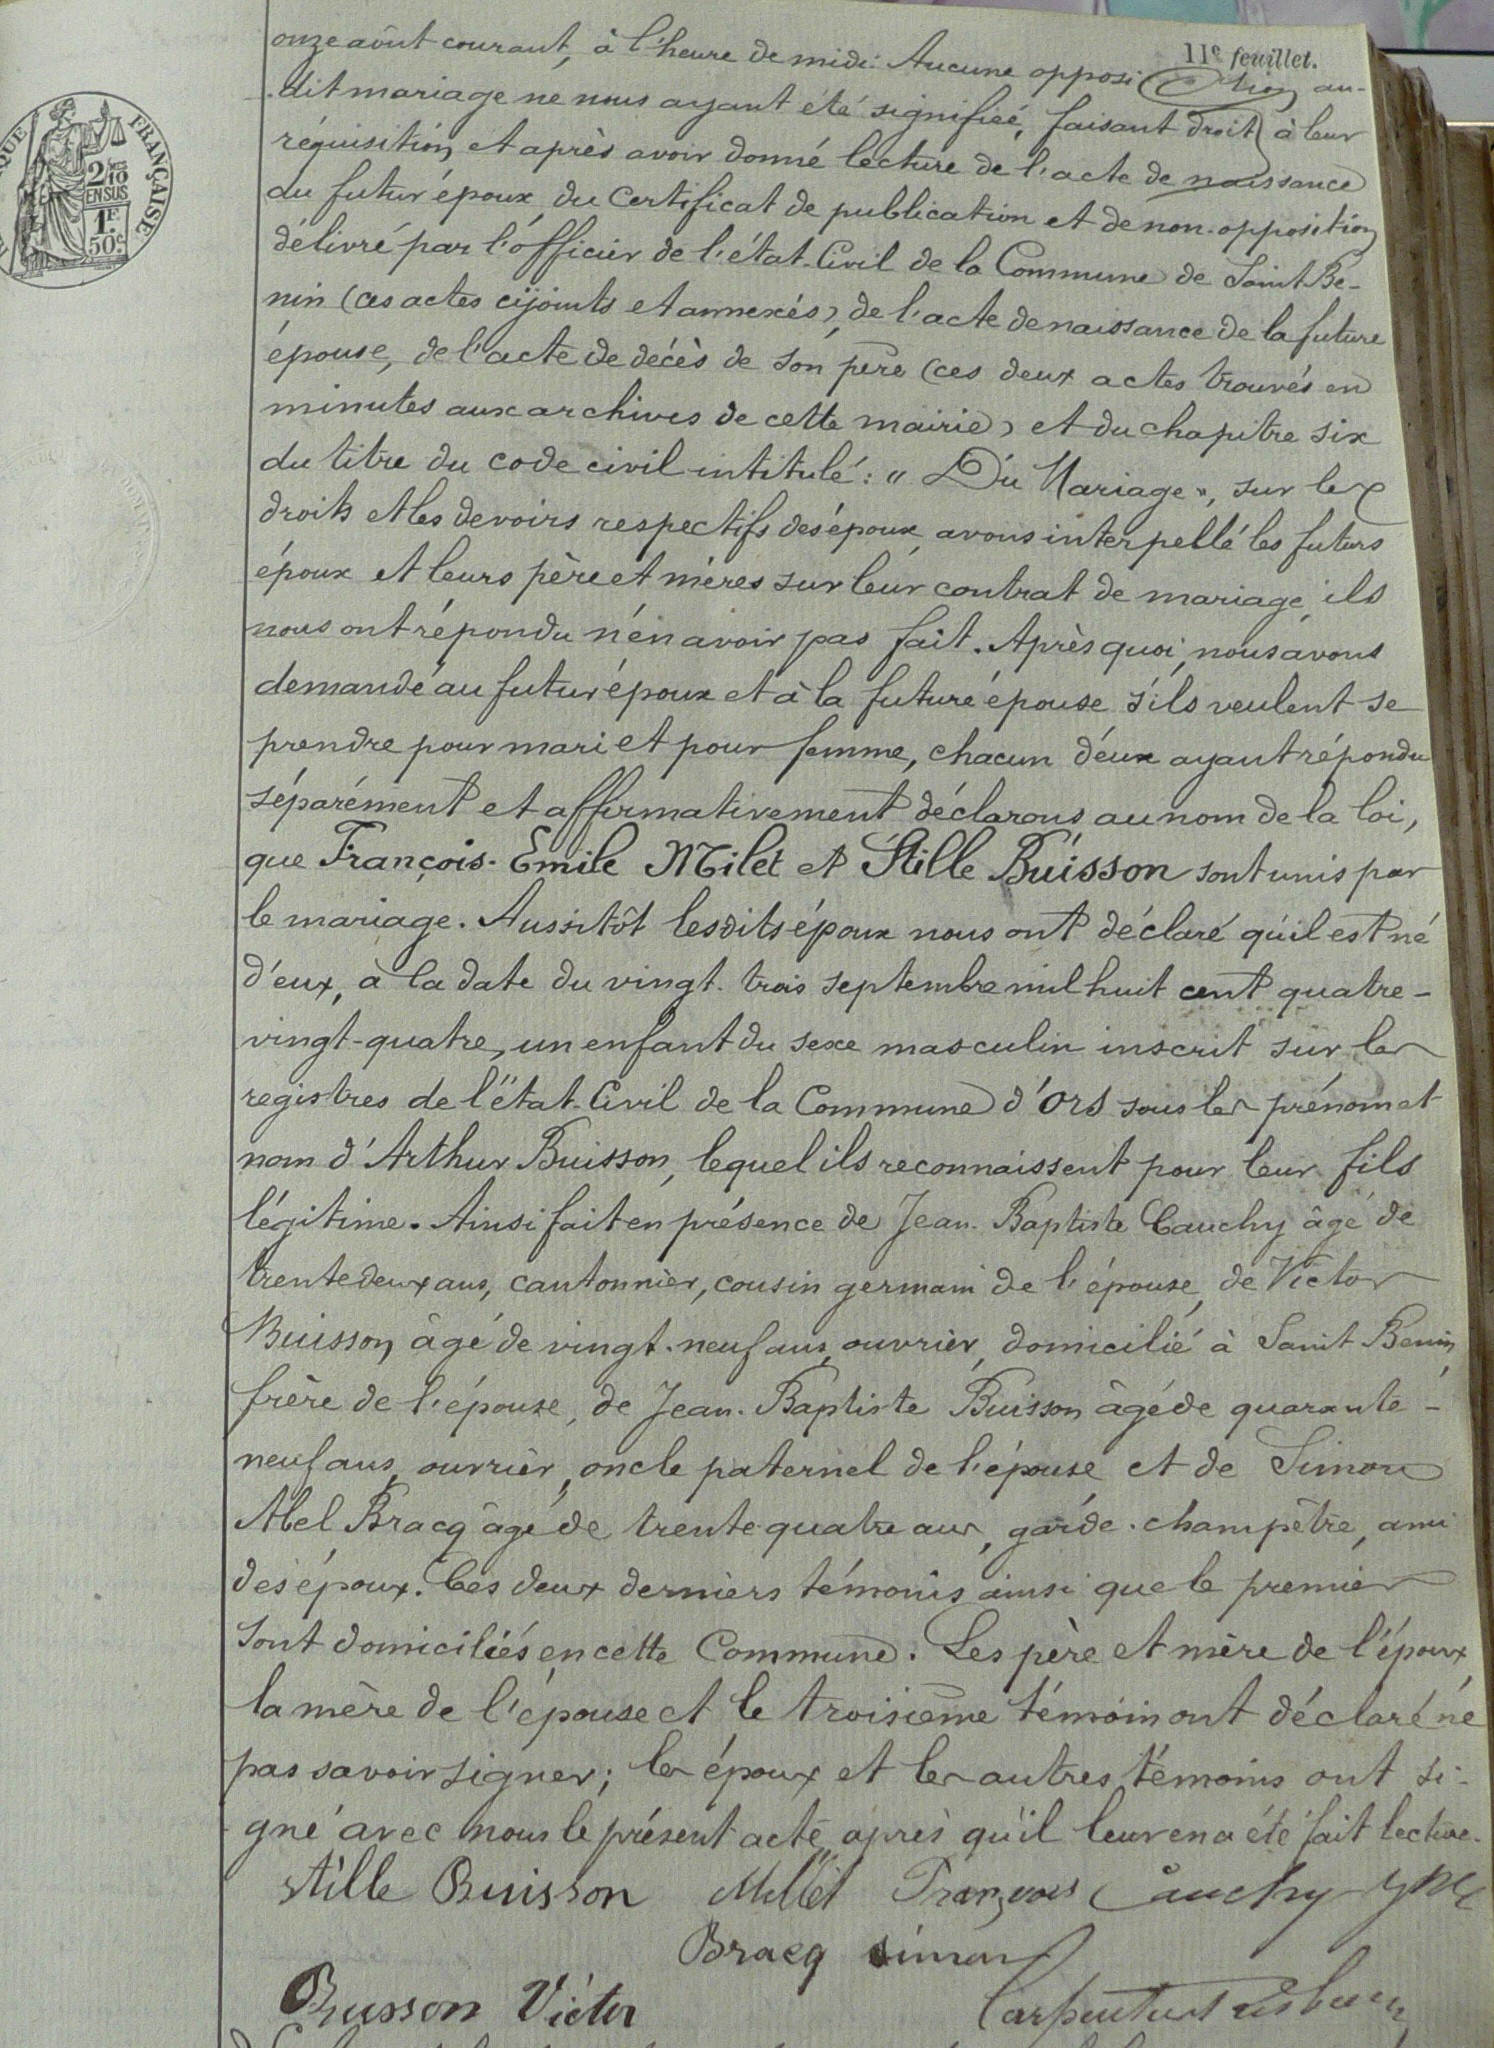 11e feuillet.
onze août courant, à l'heure de midi. Aucune opposition au-
dit mariage ne nous ayant été signifiée, faisant droit à leur
réquisition, et après avoir donné lecture de l'acte de naissance
du futur époux, du certificat de publication et de non-opposition
délivré par l'officier de l'état-Civil de la Commune de Saint-Bé-
nin (ces actes cijoints et annexés), de l'acte de naissance de la future
épouse, de l'acte de décès de son père (ces deux actes trouvés en
minutes aux archives de cette mairie) et du chapitre six
du titre du code civil intitulé: "Du Mariage", sur les
droits et les devoirs respectifs des époux, avons interpellé les futurs
époux et leurs père et mères sur leur contrat de mariage, ils
nous ont répondu n'en avoir pas fait. Après quoi, nous avons
demandé au futur époux et à la future épouse s'ils veulent se
prendre pour mari et pour femme, chacun d'eux ayant répondu
séparément et affirmativement déclarons au nom de la loi,
que François-Emile Milet et Stille Buisson sont unis par
le mariage. Aussitôt lesdits époux nous ont déclaré qu'il est né
d'eux, à la date du vingt-trois septembre mil huit cent quatre-
vingt-quatre, un enfant du sexe masculin inscrit sur les
registres de l'état-Civil de la Commune d'Ors sous les prénom et
nom d'Arthur Buisson, lequel ils reconnaissent pour leur fils
légitime. Ainsi fait en présence de Jean-Baptiste Cauchy âgé de
trente deux ans, cantonnier, cousin germain de l'épouse, de Victor
Buisson, âgé de vingt-neuf ans, ouvrier, domicilié à Saint Benin,
frère de l'épouse, de Jean-Baptiste Buisson âgé de quarante-
neuf ans, ouvrier, oncle paternel de l'épouse et de Simon
Abel Bracq âgé de trente quatre ans, garde-champêtre, ami
des époux. Ces deux derniers témoins ainsi que le premier
sont domiciliés en cette Commune. Les père et mère de l'époux,
la mère de l'épouse et le troisième témoin ont déclaré ne
pas savoir signer; les époux et les autres témoins ont si-
gné avec nous le présent acte, après qu'il leur en a été fait lecture.
Stille Buisson Millet François Cauchy
Bracq simon
Buisson Victor
QUE FRANÇAISE
2/10
EN SUS
1F.
50c